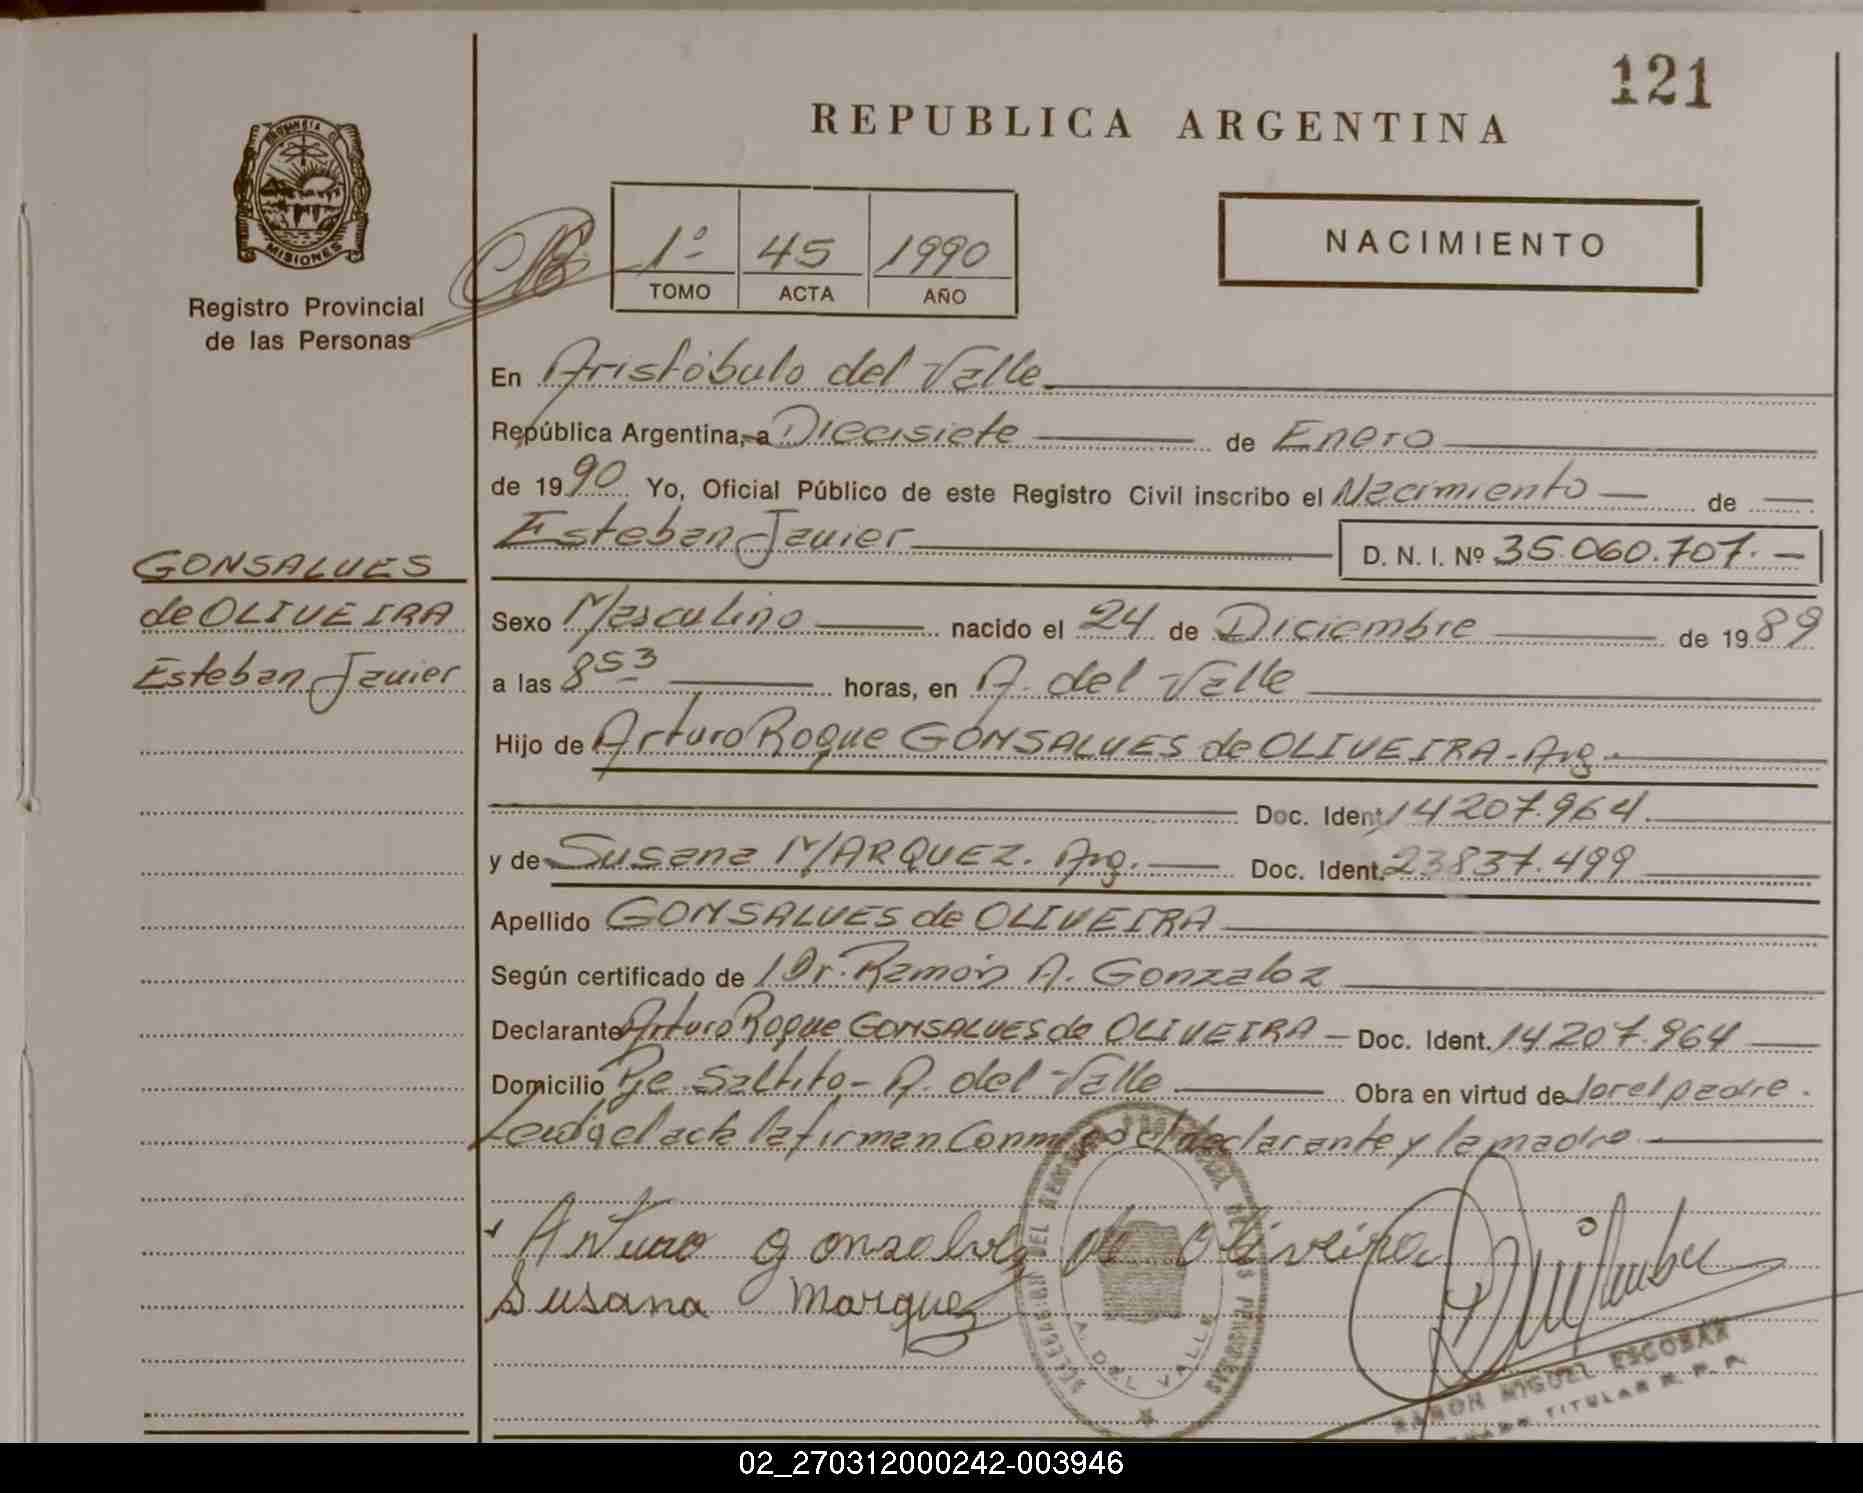 121
REPUBLICA ARGENTINA
PROVINCIA DE
MISIONES
Registro Provincial
de las Personas
1º 45 1990
TOMO ACTA AÑO
NACIMIENTO
En Aristóbulo del Valle
República Argentina, a Diecisiete de Enero
de 1990 Yo, Oficial Público de este Registro Civil inscribo el Nacimiento de
Esteban Javier D. N. I. Nº 35.060.707.-
GONSALVES
de OLIVEIRA
Esteban Javier
Sexo Masculino nacido el 24 de Diciembre de 1989
a las 8 53 horas, en A. del Valle
Hijo de Arturo Roque GONSALVES de OLIVEIRA - Arg.
Doc. Ident. 14207.964
y de Susana MARQUEZ. Arg. Doc. Ident. 23837.499
Apellido GONSALVES de OLIVEIRA
Según certificado de Dr. Ramón A. Gonzalez
Declarante Arturo Roque GONSALVES de OLIVEIRA - Doc. Ident. 14207.964
Domicilio Pje. Saltito - A. del Valle Obra en virtud de ser el padre.
Leida el acta la firman Conmigo el declarante y la madre.
Arturo gonsalves de Oliveira
Susana Marquez
A. DEL VALLE
RAMON MIGUEL ESCOBAR
TITULAR R. P. P.
02_270312000242-003946